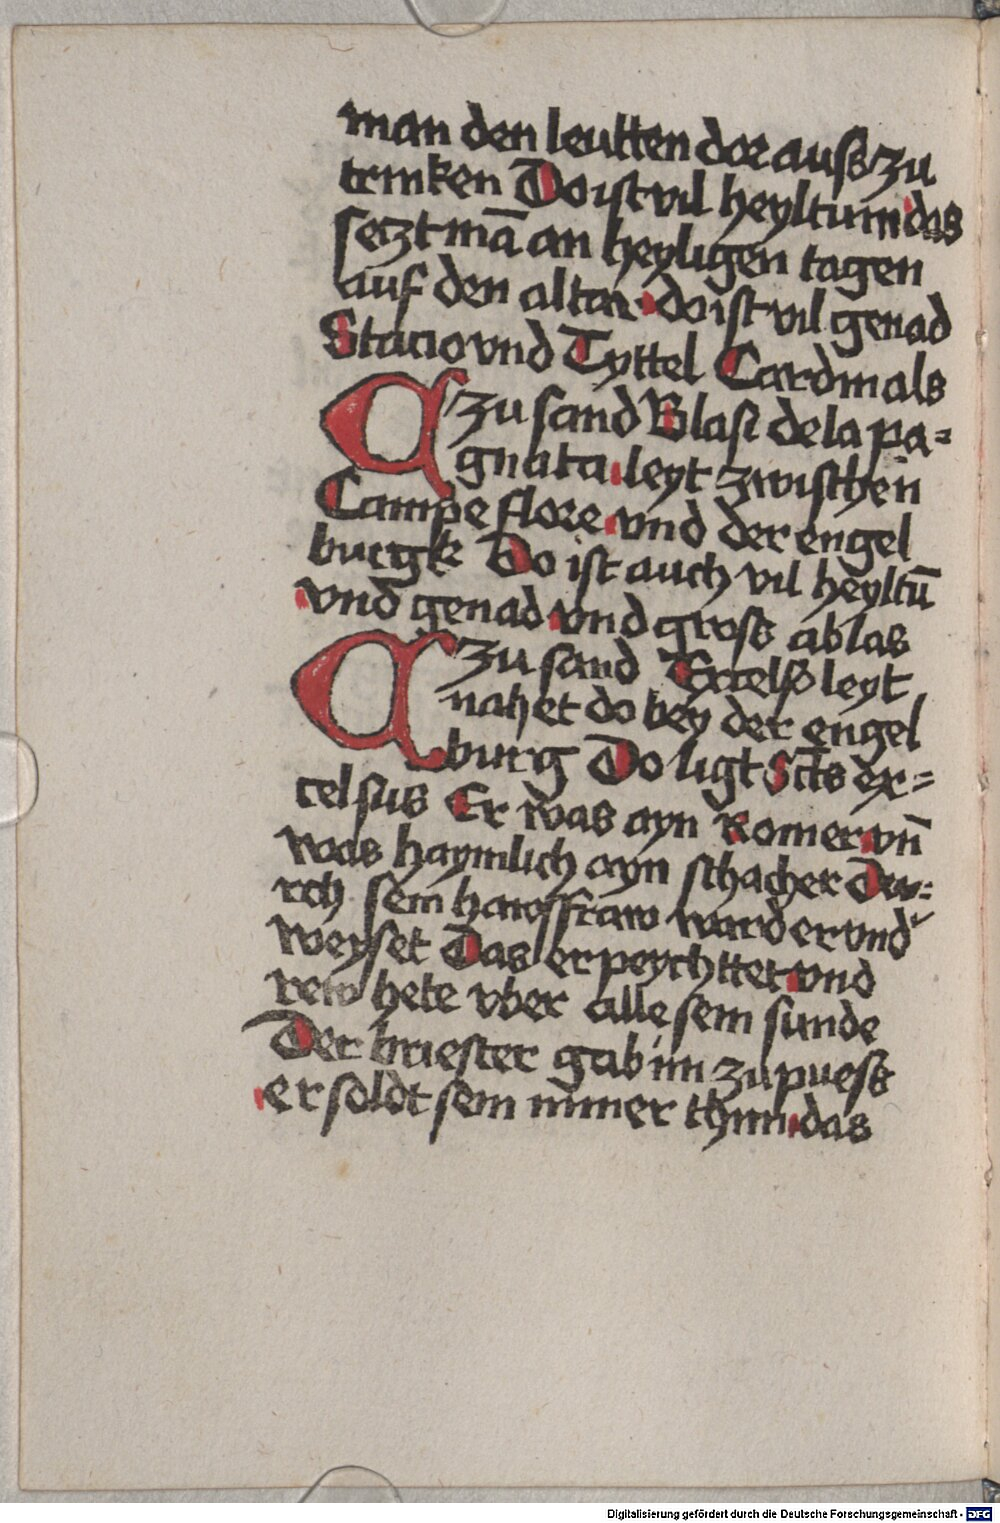 man den leutten dor auss zu
trinken Do ist vil heyltum das
seczt mā an heyligen tagen
auf den altar do ist vil genad
Stacio vnd Tyttel Cardinals
A zu sand Blasi de la pa=
gnata leyt zwischen
Campe flore vnd der engel
burgk Do ist auch vil heyltū
vnd genad vnd gross ablas
A zu sand Excelso leyt
nahet do bey der engel
burg Do ligt Scts ex=
celsus Er was ayn Romer vn̄
was haymlich ayn schacher Du=
rch sein hawsfraw ward er vnd
weyset Das er peychttet vnd
rew hete vber alle sein sunde
Der briester gab im zu puess
er soldt sein nimer thun das
Digitalisierung gefördert durch die Deutsche Forschungsgemeinschaft - DFG